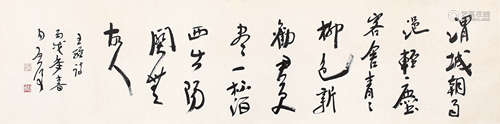 渭城朝雨
浥轻尘
客舍青々
柳色新
劝君更
尽一杯酒
西出阳
关无
故人
王维诗